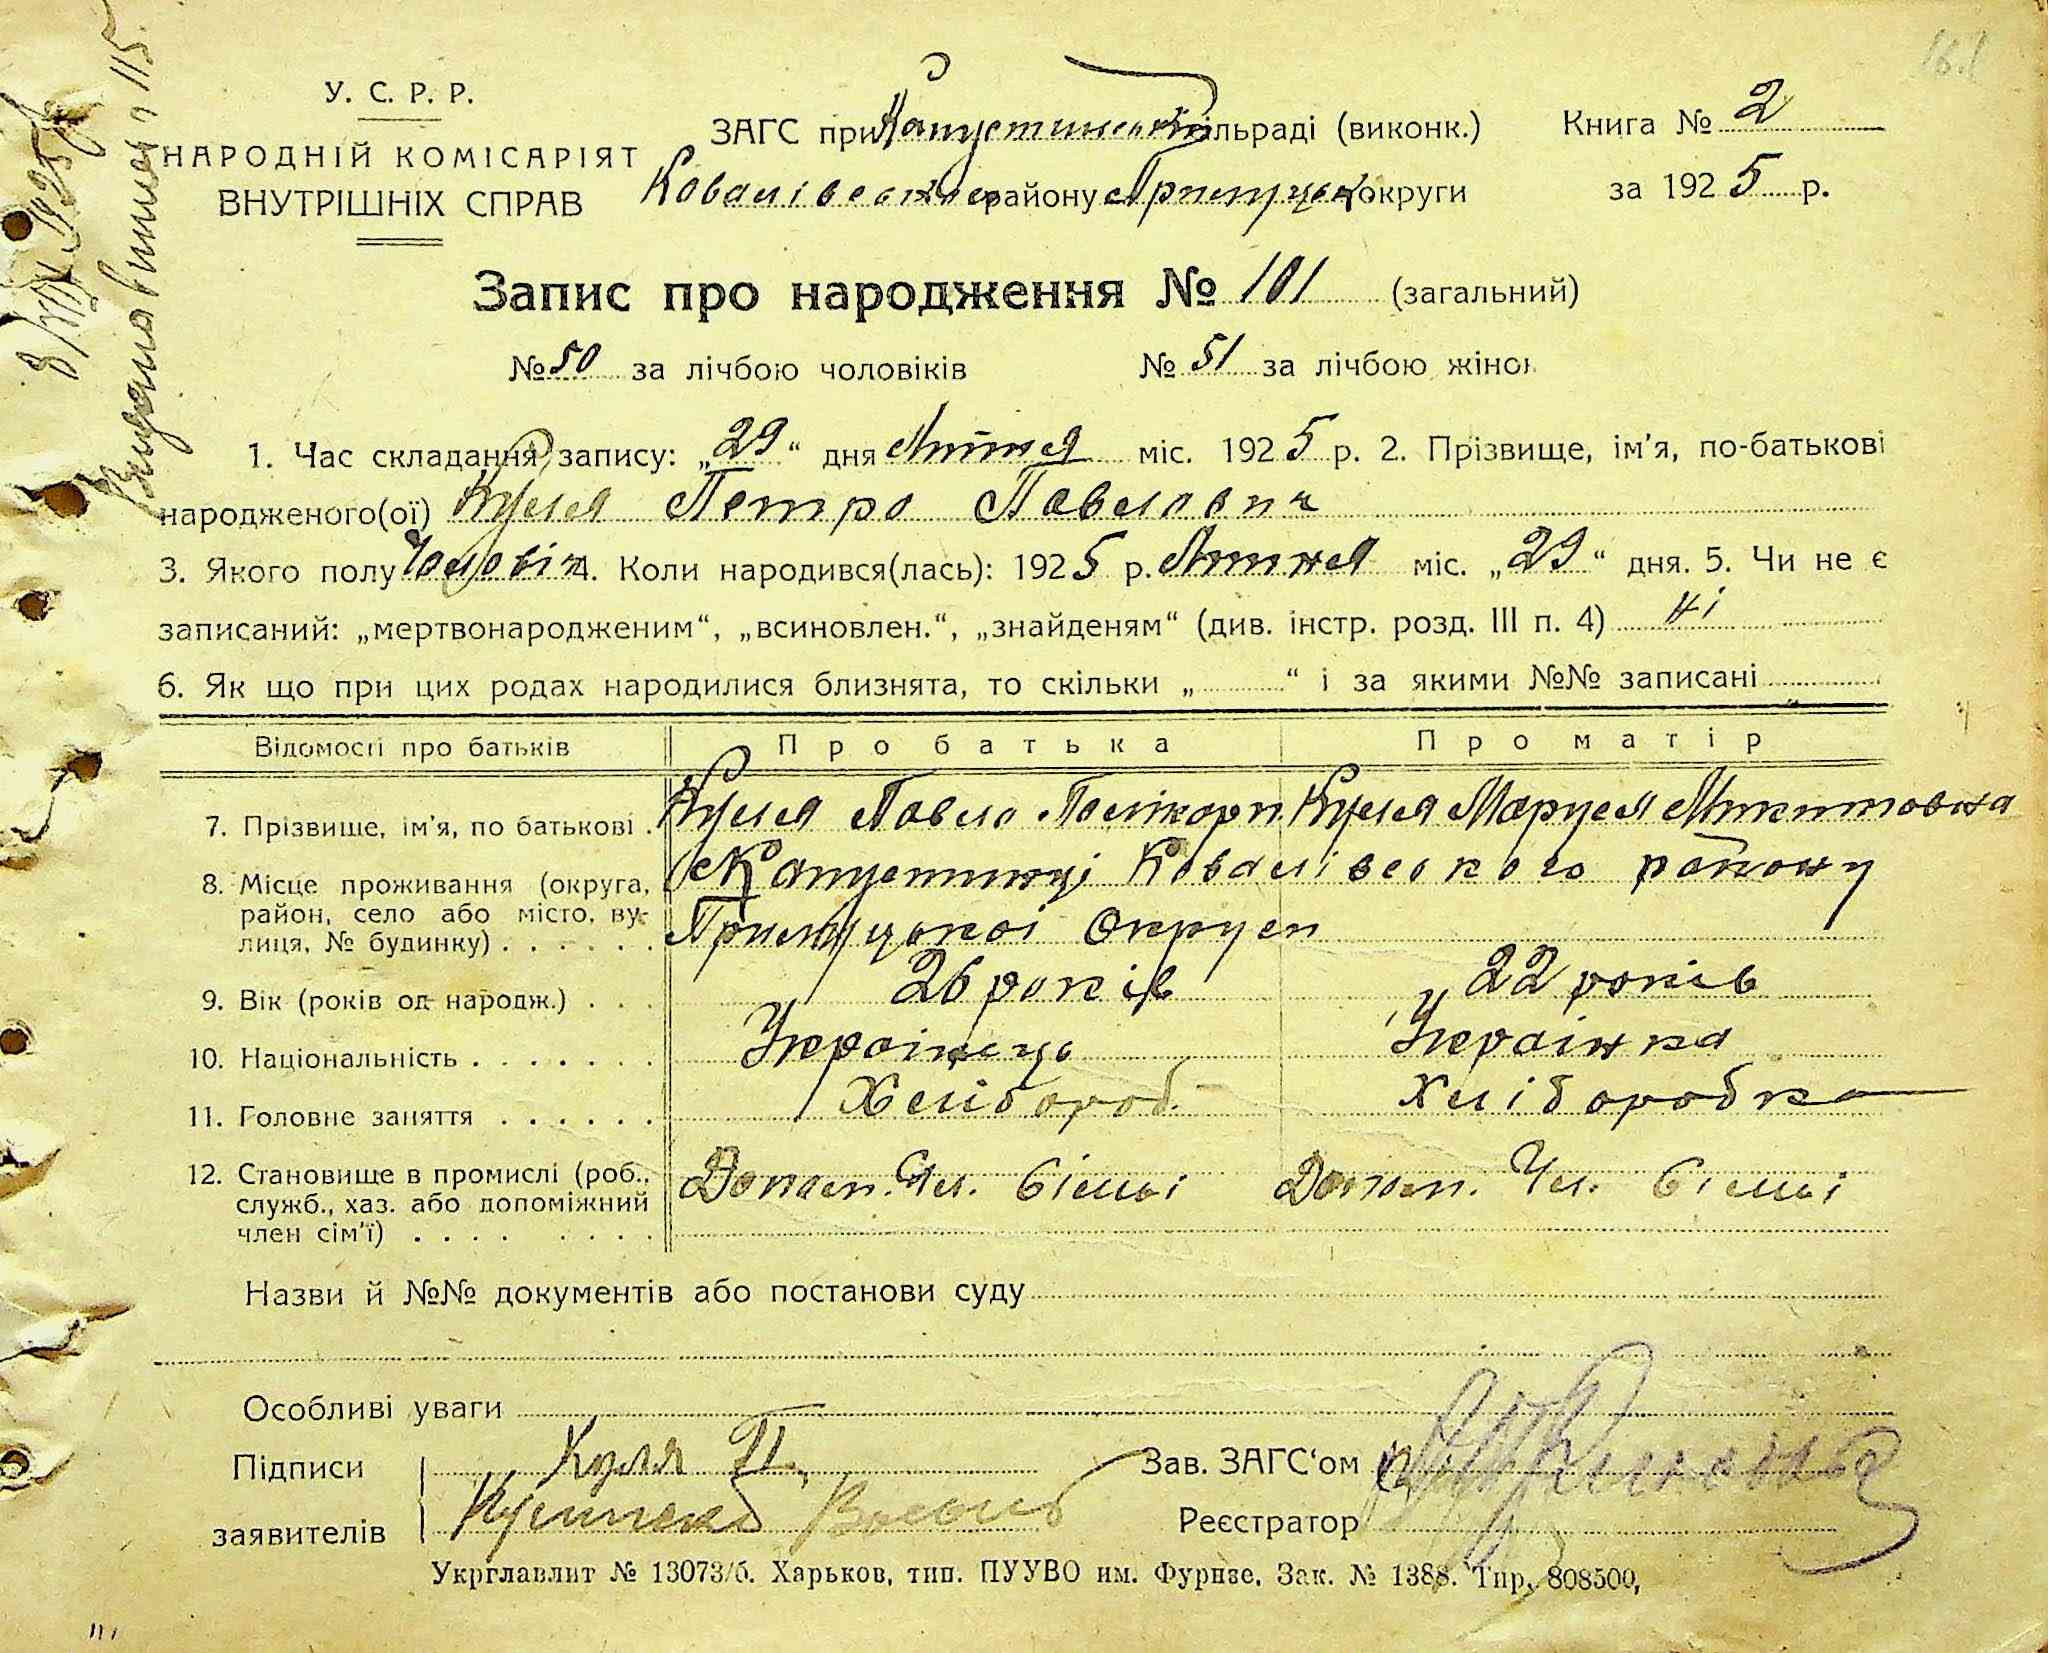 161
У. С. Р. Р.
НАРОДНІЙ КОМІСАРІЯТ
ВНУТРІШНІХ СПРАВ
ЗАГС при Капустинській сільраді (виконк.)
Ковалівського району Прилуцької округи
Книга № 2
за 1925 р.
Запис про народження № 101 (загальний)
№ 50 за лічбою чоловіків № 51 за лічбою жінок
1. Час складання запису: „29“ дня Липня міс. 1925 р. 2. Прізвище, ім'я, по-батькові
народженого(ої) Куля Петро Павлович
3. Якого полу Чоловіч 4. Коли народився(лась): 1925 р. Липня міс. „29“ дня. 5. Чи не є
записаний: „мертвонародженим“, „всиновлен.“, „знайденям“ (див. інстр. розд. III п. 4) Ні
6. Як що при цих родах народилися близнята, то скільки „ “ і за якими №№ записані
Відомості про батьків Про батька Про матір
7. Прізвише, ім'я, по батькові . Куля Павло Полікарп. Куля Маруся Микитовна
8. Місце проживання (округа, район, село або місто, ву-
лиця, № будинку) . . . . . . Капустинці Ковалівського району
Прилуцької округи
9. Вік (років од народж.) . . . 26 років 22 років
10. Національність . . . . . . . Українець Українка
11. Головне заняття . . . . . . Хлібороб. Хліборобка
12. Становище в промислі (роб., служб., хаз. або допоміжний
член сім'ї) . . . . . . . . Допом. Чл. Сімьі Допом. Чл. Сімьі
Назви й №№ документів або постанови суду
Особливі уваги
Підписи Куля П.
заявителів
Зав. ЗАГС'ом
Реєстратор
Укрглавлит № 13073/б. Харьков, тип. ПУУВО им. Фурнзе, Зак. № 1388. Тир. 808500,